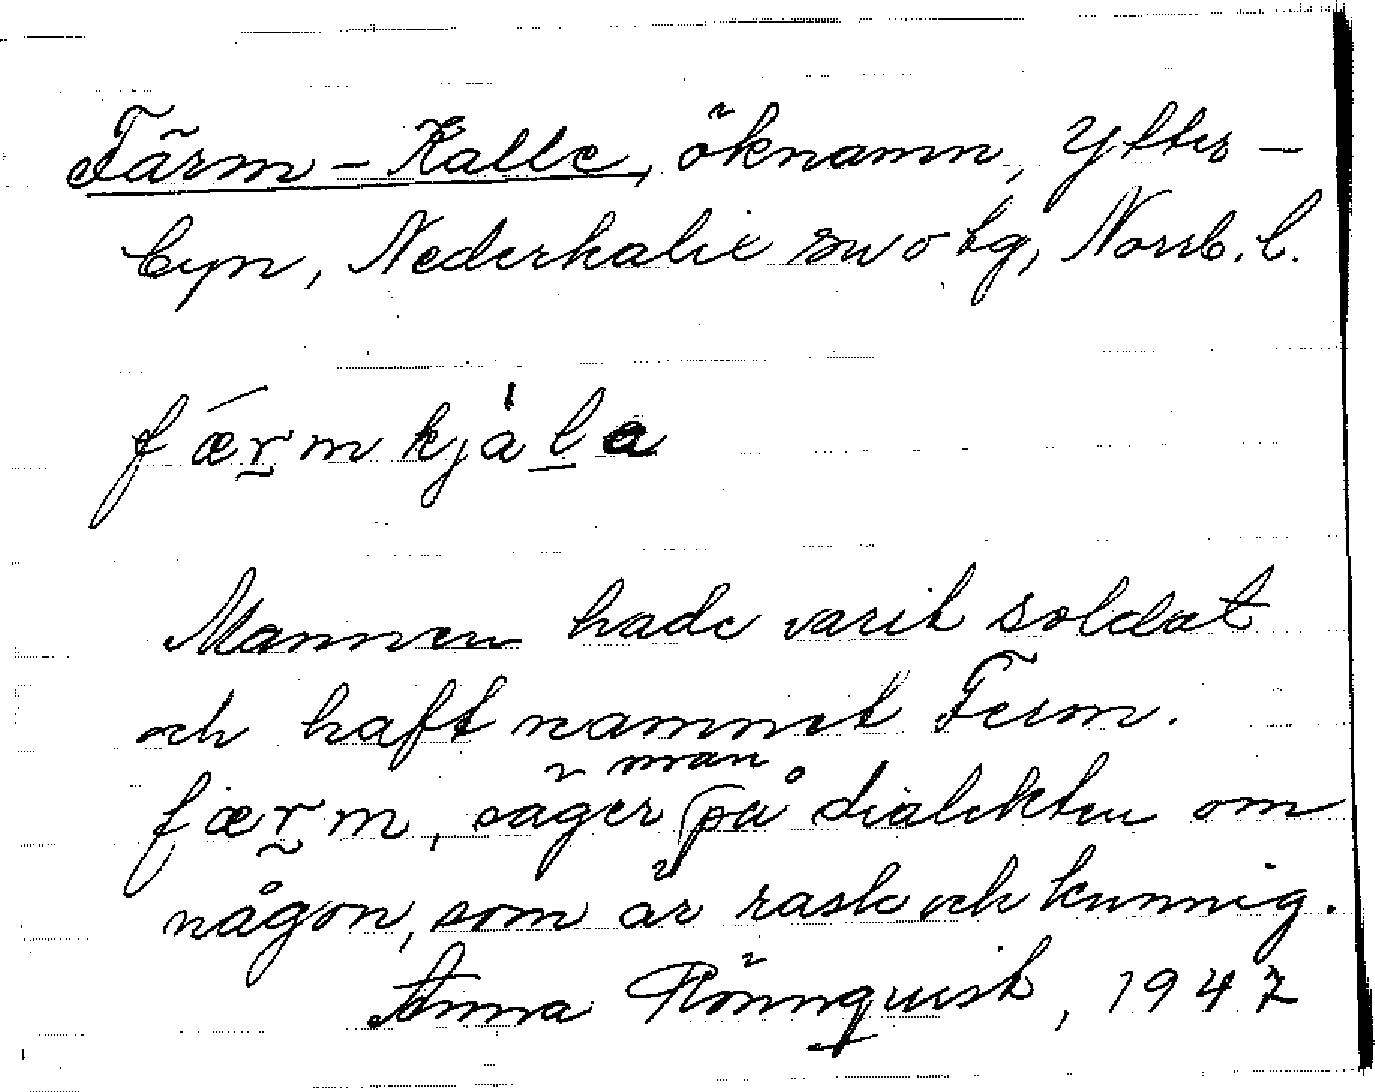 Färm-Kalle, öknamn, Ytter-
byn, Nederkalix sn o tg, Norrb. l.
færmkjala
Mannen hade varit soldat
och haft namnet Ferm.
færm, säger man på dialekten om
någon, som är rask och kunnig.
Anna Rönnquist, 1947